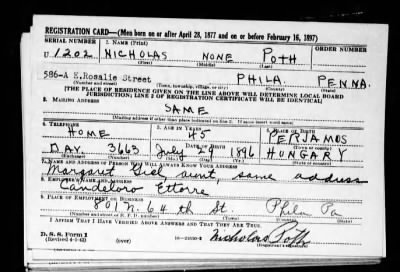 REGISTRATION CARD—(Men born on or after April 28, 1877 and on or before February 16, 1897)
SERIAL NUMBER 1. NAME (Print) ORDER NUMBER
U 1202 NICHOLAS NONE POTH
(First) (Middle) (Last)
586-A E. Rosalie Street PHILA. PENNA.
(Number and street) (Town, township, village, or city) (County) (State)
[THE PLACE OF RESIDENCE GIVEN ON THE LINE ABOVE WILL DETERMINE LOCAL BOARD
JURISDICTION; LINE 2 OF REGISTRATION CERTIFICATE WILL BE IDENTICAL]
3. MAILING ADDRESS
SAME
[Mailing address if other than place indicated on line 2. If same insert word same]
4. TELEPHONE 5. AGE IN YEARS 6. PLACE OF BIRTH
HOME 45 PERJAMOS
DATE OF BIRTH (Town or county)
DAV. 3663 July 29 1896 HUNGARY
(Exchange) (Number) (Mo.) (Day) (Yr.) (State or country)
7. NAME AND ADDRESS OF PERSON WHO WILL ALWAYS KNOW YOUR ADDRESS
Margaret aunt, same address
8. EMPLOYER'S NAME AND ADDRESS
Candeloro Ettorre
9. PLACE OF EMPLOYMENT OR BUSINESS
801 N. 64 th St Phila Pa
(Number and street or R. F. D. number) (Town) (County) (State)
I AFFIRM THAT I HAVE VERIFIED ABOVE ANSWERS AND THAT THEY ARE TRUE.
D. S. S. Form 1
(Revised 4-1-42) (over) Nicholas Poth